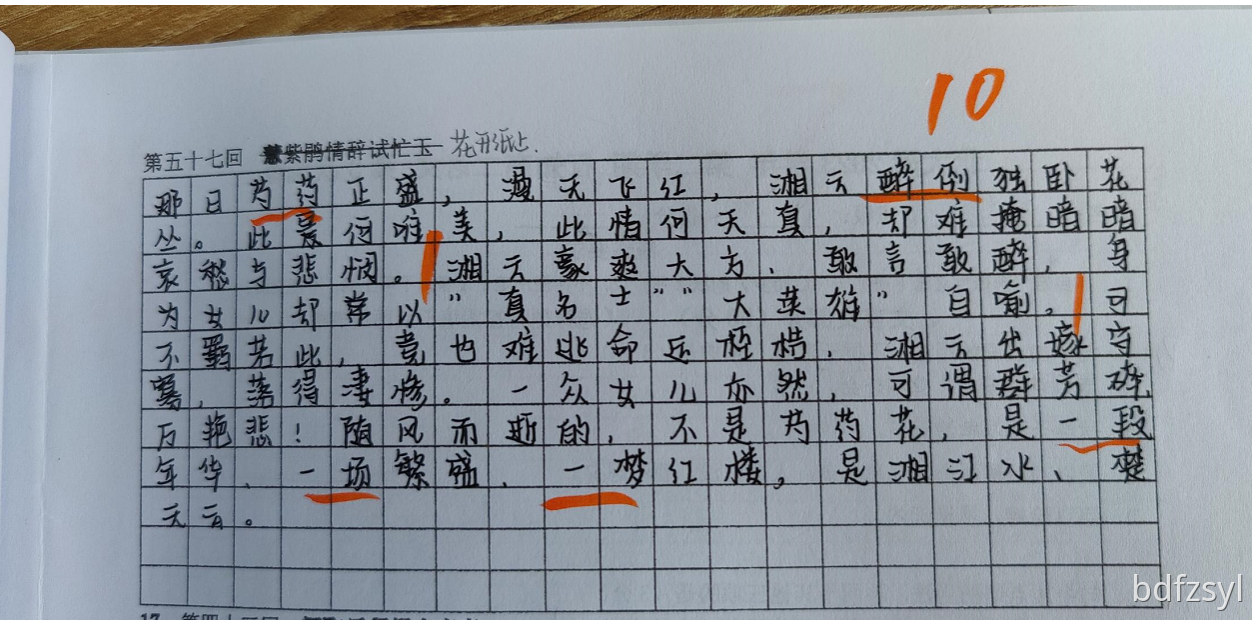 10
第五十七回 慧紫鹃情辞试忙玉 花形纸上.
那日芍药正盛,漫天飞红,湘云醉倒独卧花
丛。此景何唯美,此情何天真,却难掩暗暗
哀愁与悲悯。湘云豪爽大方、敢言敢醉,身
为女儿却常以"真名士""大英雄"自喻。可
不羁若此,竟也难逃命运桎梏,湘云出嫁守
寡,落得凄惨。一众女儿亦然,可谓群芳碎,
万艳悲!随风而逝的,不是芍药花,是一段
年华、一场繁盛、一梦红楼,是湘江水、楚
天云。
bdfzsyl